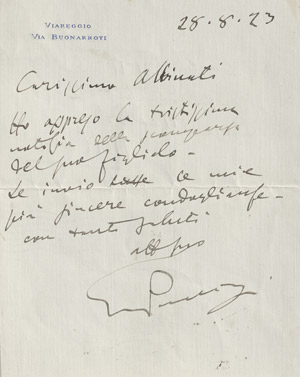 VIAREGGIO
VIA BUONARROTI
28.8.23
Carissimo Albinati
Ho appreso la tristissima
notizia della scomparsa
del suo figliolo -
Le invio le mie
più sincere condoglianze -
con tanti saluti
aff suo
GPuccini